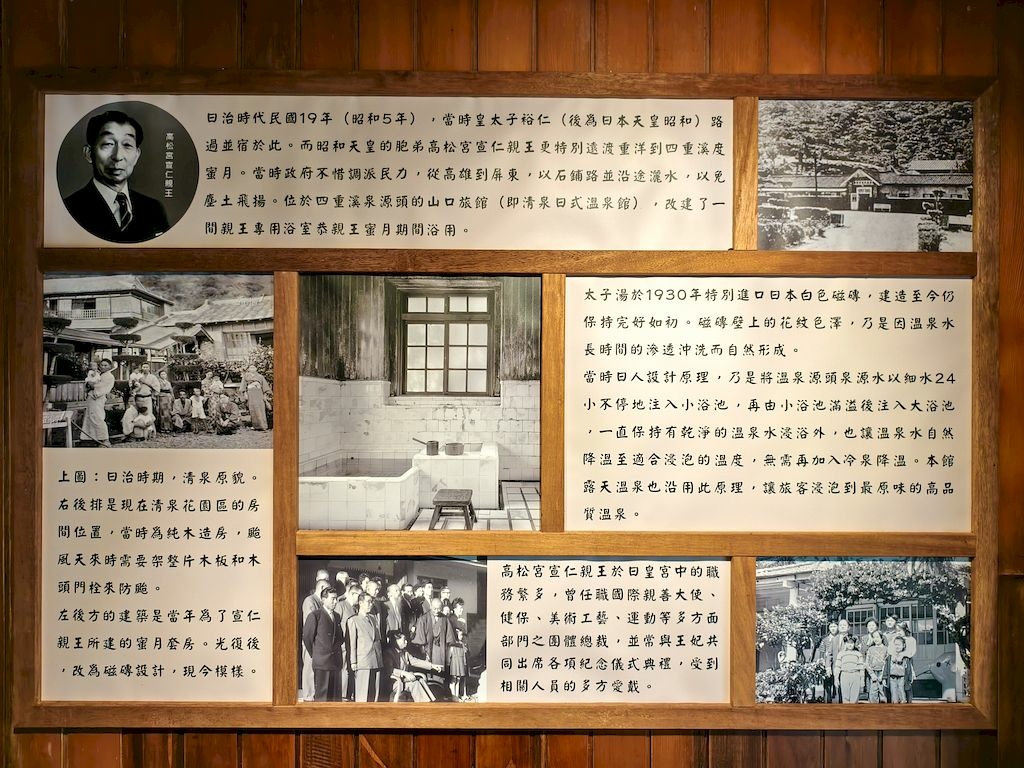 高松宮宣仁親王
日治時代民國19年（昭和5年），當時皇太子裕仁（後為日本天皇昭和）路
過並宿於此。而昭和天皇的胞弟高松宮宣仁親王更特別遠渡重洋到四重溪度
蜜月。當時政府不惜調派民力，從高雄到屏東，以石鋪路並沿途灑水，以免
塵土飛揚。位於四重溪泉源頭的山口旅館（即清泉日式溫泉館），改建了一
間親王專用浴室恭親王蜜月期間浴用。
太子湯於1930年特別進口日本白色磁磚，建造至今仍
保持完好如初。磁磚壁上的花紋色澤，乃是因溫泉水
長時間的滲透沖洗而自然形成。
當時日人設計原理，乃是將溫泉源頭泉源水以細水24
小不停地注入小浴池，再由小浴池滿溢後注入大浴池
，一直保持有乾淨的溫泉水浸浴外，也讓溫泉水自然
降溫至適合浸泡的溫度，無需再加入冷泉降溫。本館
露天溫泉也沿用此原理，讓旅客浸泡到最原味的高品
質溫泉。
上圖：日治時期，清泉原貌。
右後排是現在清泉花園區的房
間位置，當時為純木造房，颱
風天來時需要架整片木板和木
頭門栓來防颱。
左後方的建築是當年為了宣仁
親王所建的蜜月套房。光復後
，改為磁磚設計，現今模樣。
高松宮宣仁親王於日皇宮中的職
務繁多，曾任職國際親善大使、
健保、美術工藝、運動等多方面
部門之團體總裁，並常與王妃共
同出席各項紀念儀式典禮，受到
相關人員的多方愛戴。